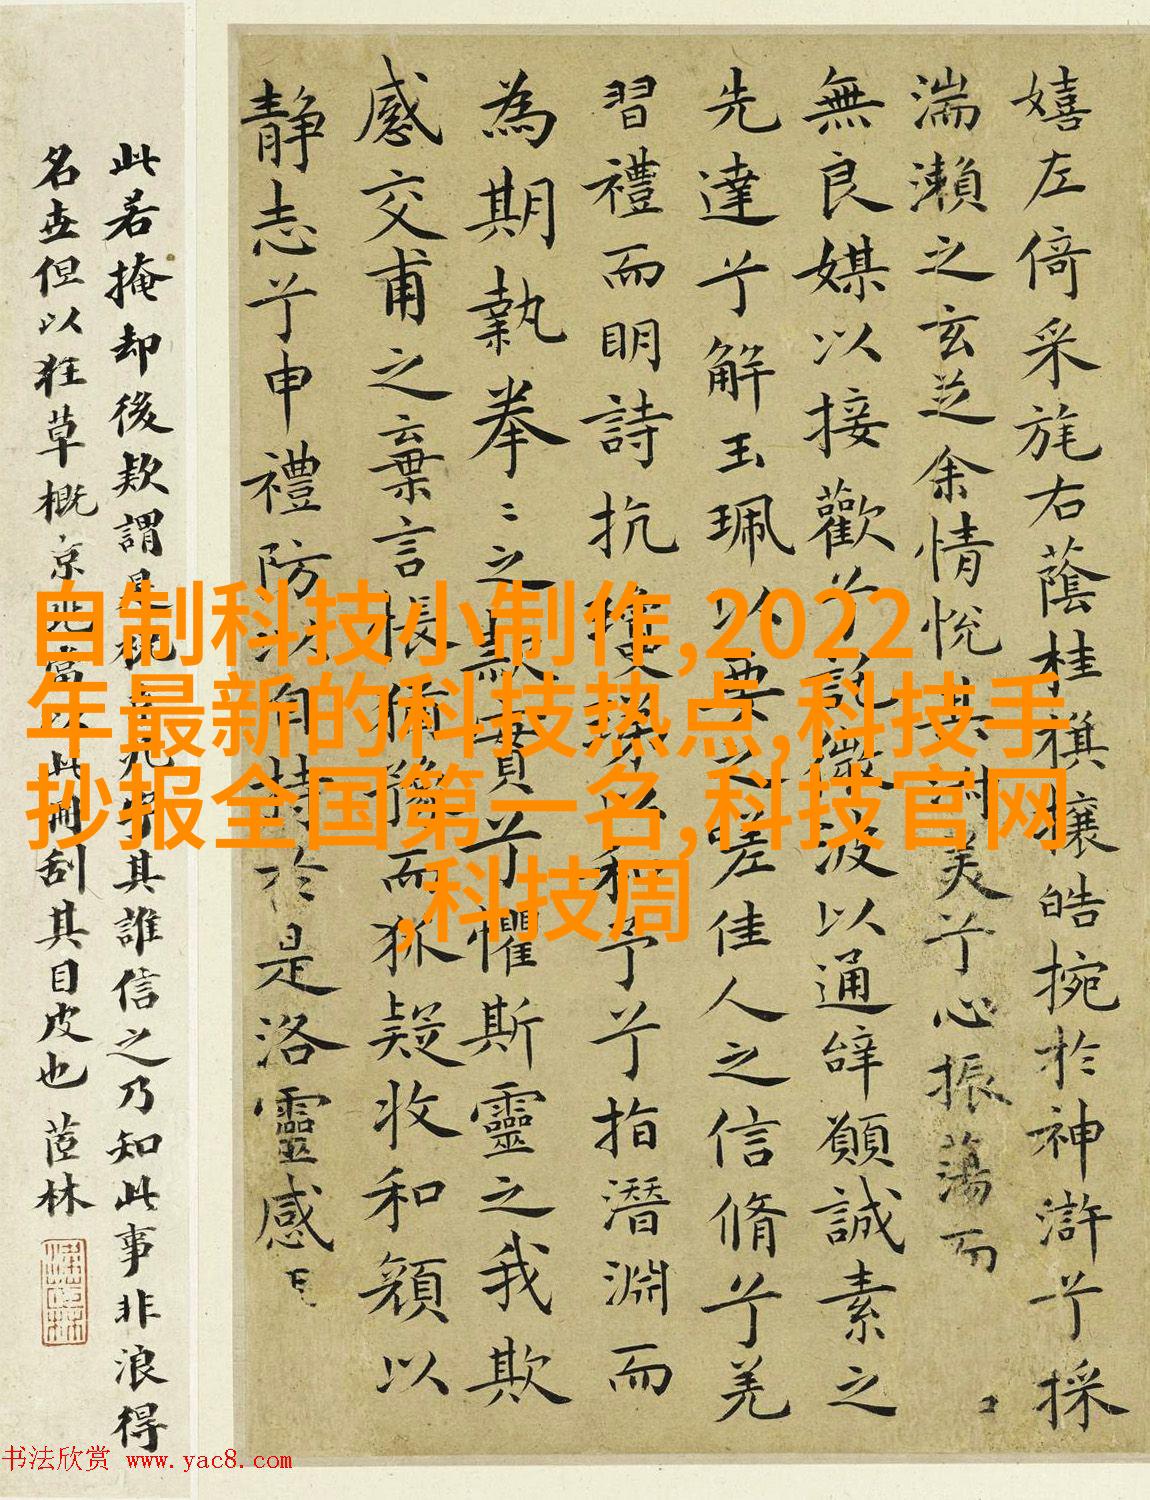 嬉左倚采旄右蔭桂旗攘皓捥於神滸兮採
湍瀨之玄芝余情悅其淑美兮心振蕩而
無良媒以接歡兮託微波以通辭願誠素之
先達兮解玉珮以要之嗟佳人之信脩兮羌
習禮而明詩抗瓊珶以和予兮指潛淵而
為期執拳〻之款實兮懼斯靈之我欺
感交甫之棄言悵猶豫而狐疑收和顏以
靜志兮申禮防以自持於是洛靈感
此若掩却後款謂是枝其誰信之乃知此事非浪得
名世但以狂草概京兆當以此冊刮其目皮也 茝林
自制科技小制作,2022
年最新的科技热点,科技手
抄报全国第一名,科技官网
,科技周
书法欣赏 www.yac8.com